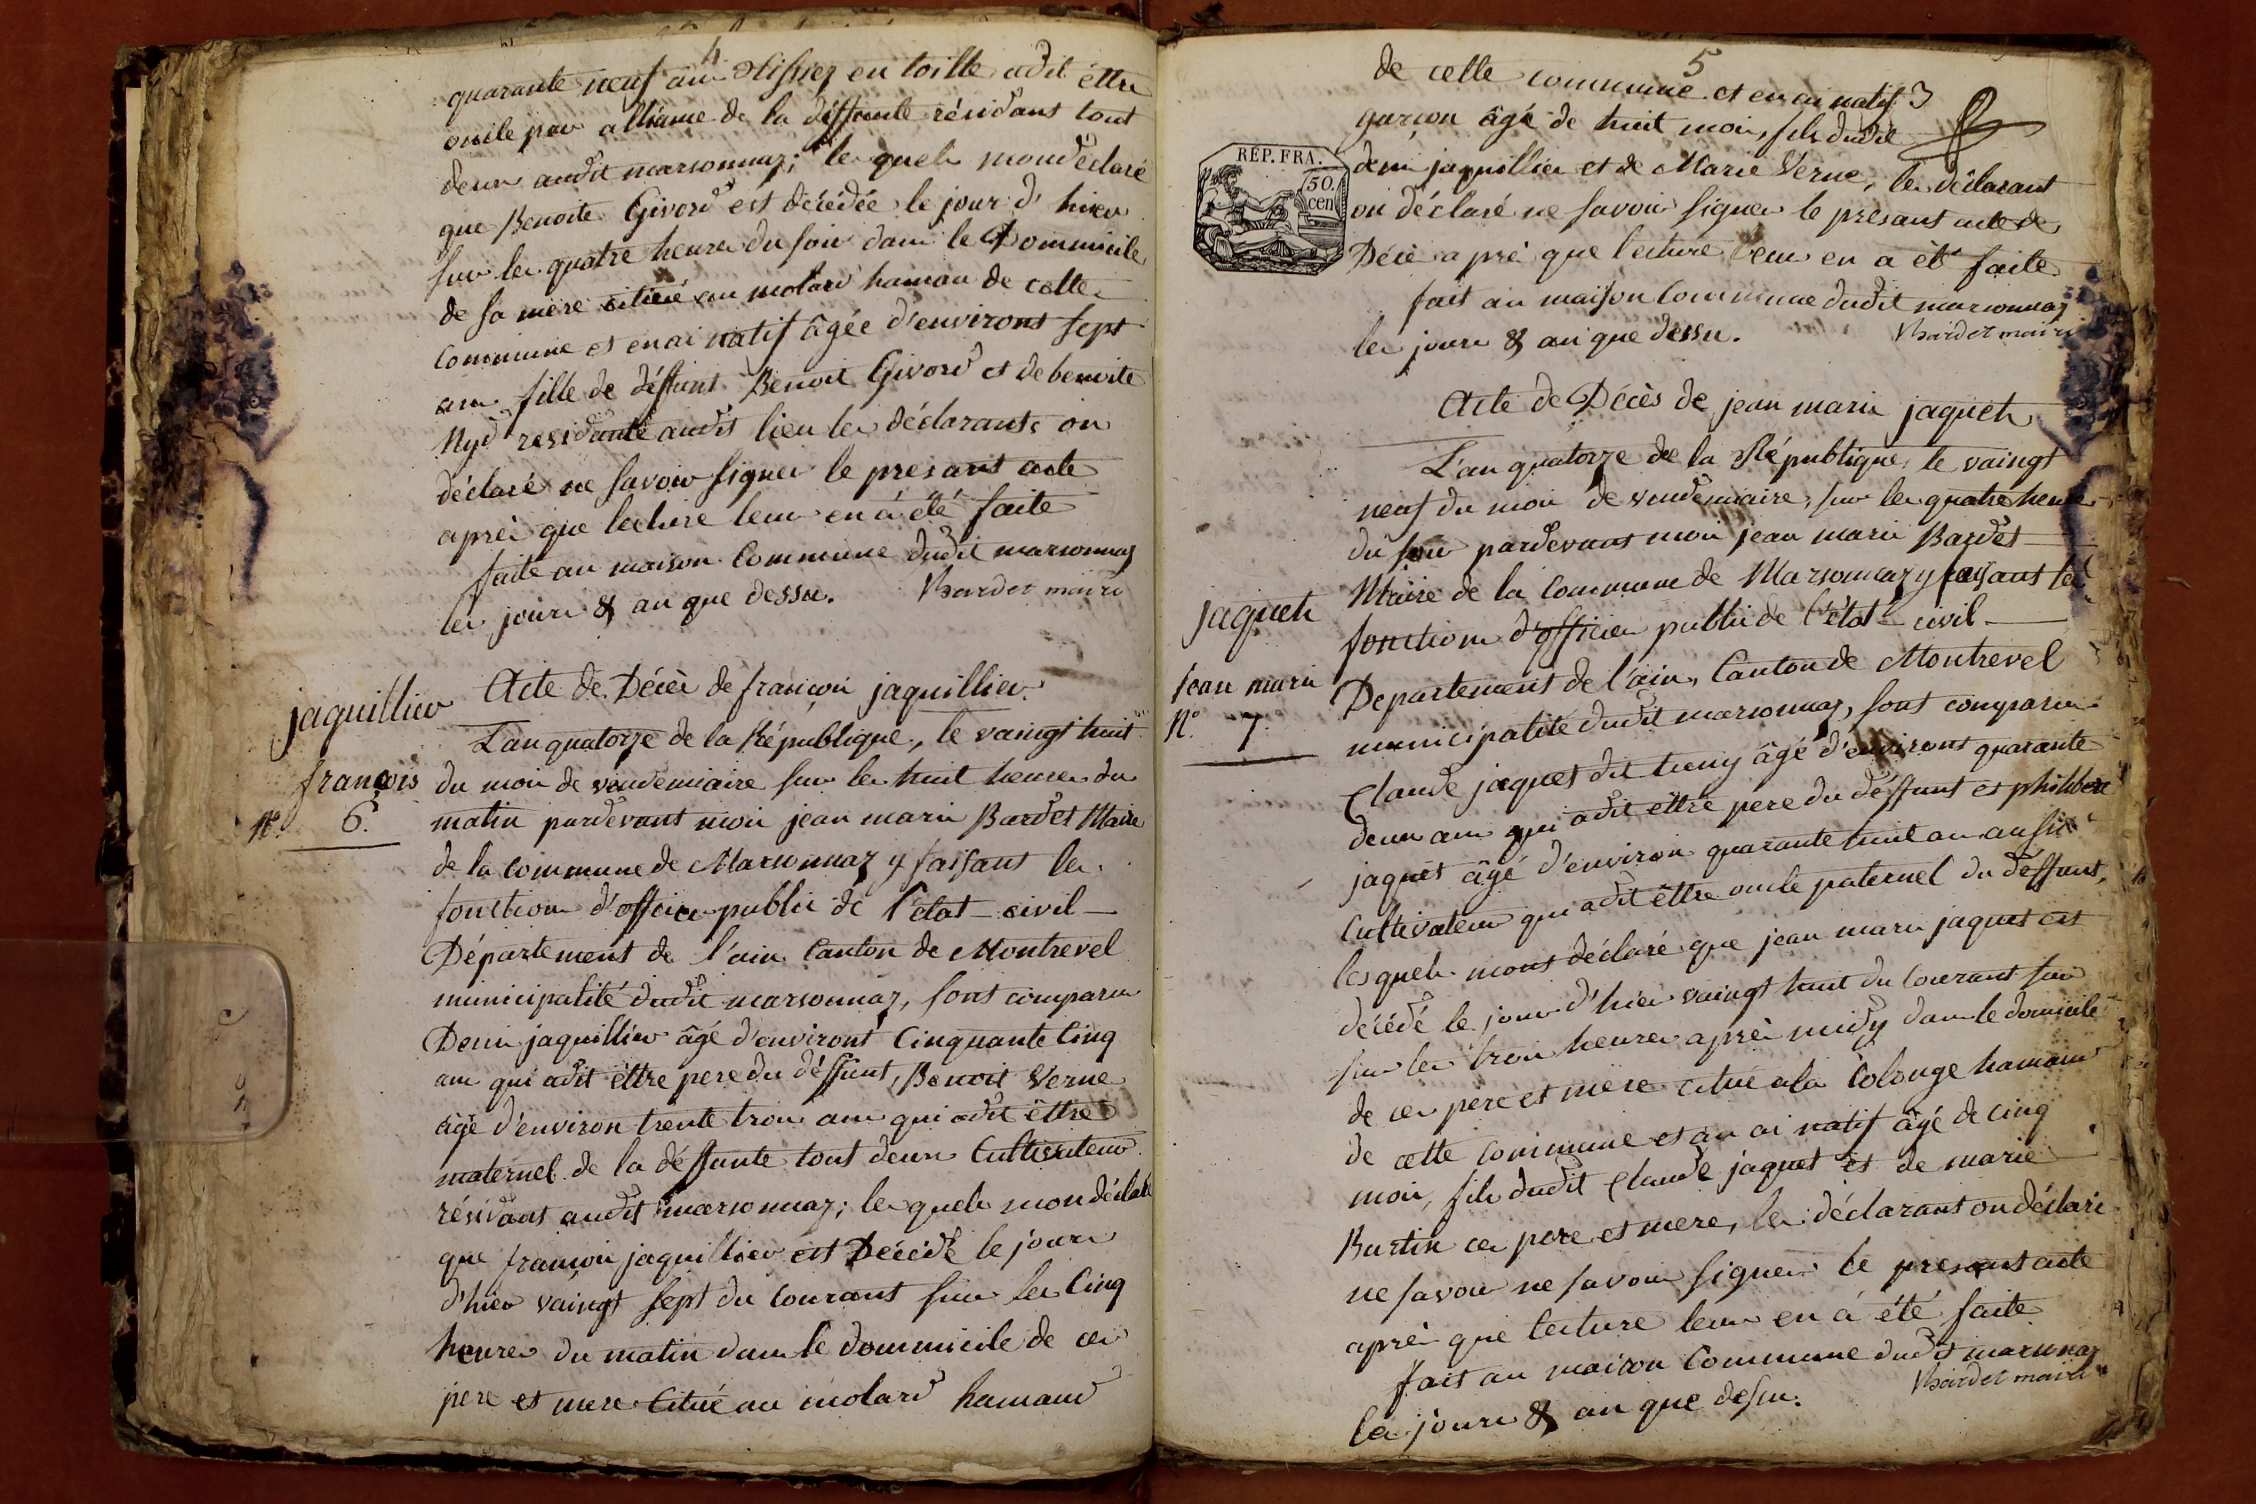 4
quarante neuf ans tissiez en toille adit êttre
oncle par alliance de la déffunte résidans tout
deux audit marsonnaz; les quels mon déclaré
que Benoite Givord est décédée le jour d'hiers
sur les quatre heures du soir dans le Dommicile
de sa mere citué au molard hamau de cette
Commune et en ai natif âgée d'environt sept
ans fille de déffunt Benoit Givord et de benoite
Nyd residante audit lieu les déclarants on
déclaré ne savoir signer le presant acte
après que lecture leur en á été faite
faite au maison Commune dudit marsonnaz
les jours & an que dessu. Bardet maire
Acte de Décès de françois jaquillier
jaquillier
françois
N.º 6.
L'an quatorze de la République, le vaingt huit
du mois de vendemiaire sur les huit heures du
matin pardevant mois jean marie Bardet Maire
de la Commune de Marsonnaz y faisant les
fonctions d'officier public de l'état civil
Département de l'ain Canton de Montrevel
municipalité dudit marsonnaz, sont comparus
Denis jaquillier âgé d'environt Cinquante Cinq
ans qui adit êttre pere du déffunt, Benoit Verne
âgé d'environ trente trois ans qui adit êttre
maternel de la déffunte tout deux Cultivateur
résidant audit marsonnaz; les quels mon déclaré
que françois jaquillier est Décédé le jours
d'hier vaingt sept du Courant sur les Cinq
heures du matin dans le dommicile de ces
pere et mere Citué au molard hamaud
5
de cette commune et en ai natif 3
garçon âgé de huit mois, fils dudit
REP. FRA.
50.
cen
denis jaquillier et de Marie Verne, les déclarant
on déclaré ne savoir signer le présant acte de
Décè après que lecture leur en a été faite
fait au maison Commune dudit marsonnaz
les jours & an que dessu. Bardet maire
Acte de Décès de jean marie jaquet
jaquet
jean marie
N.º 7.
L'an quatorze de la République, le vaingt
neuf du mois de vendemiaire, sur les quatre heures
du soir pardevant mois jean marie Bardet
Maire de la Commune de Marsonnaz y faisant les
fonctions d'officier public de l'état civil
Departement de l'ain, Canton de Montrevel
municipalité dudit marsonnaz, sont comparus
Claude jaquet dit âgé d'environt quarante
deux ans qui adit êttre pere du déffunt et philibert
jaquet âgé d'environ quarante huit an aussi
Cultivateur qui adit êttre oncle paternel du déffunt,
les quels mont déclaré que jean marie jaquet est
décédé le jour d'hier vaingt huit du Courant sur
sur les trois heures après midy dans le domicile
de ces pere et mere citué a la Colonge hamaud
de cette commune et an ai natif âgé de cinq
mois, fils dudit Claude jaquet et de marie
Burtin ces pere et mere, les déclarant on déclaré
ne savoir ne savoir signer le presant acte
après que lecture leur en á été faite
fait au maison Commune dudit marsonnaz
les jours & an que dessu. Bardet maire